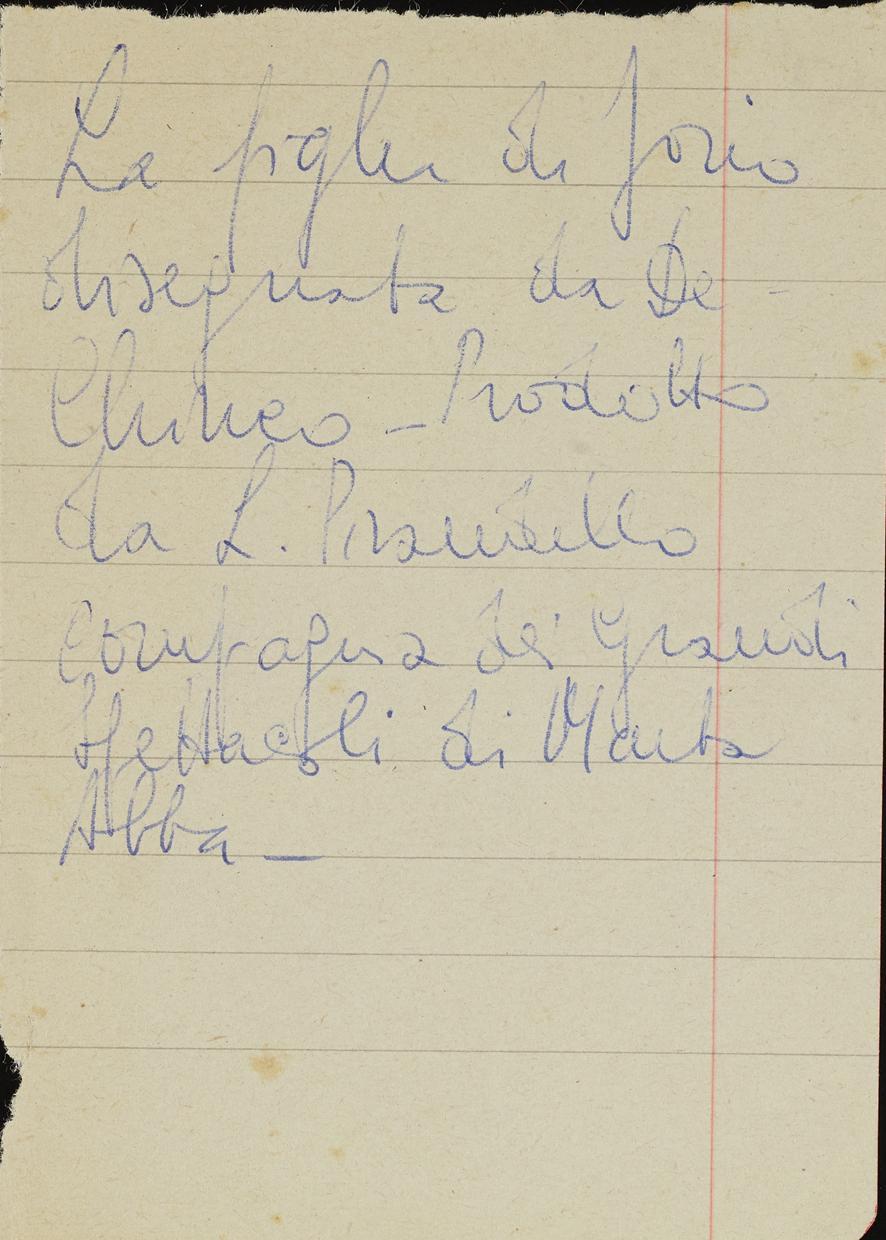 La figlia di Jorio
disegnata da De -
Chirico - Prodotto
da L. Pirandello
compagnia dei grandi
spettacoli di Marta
Abba -